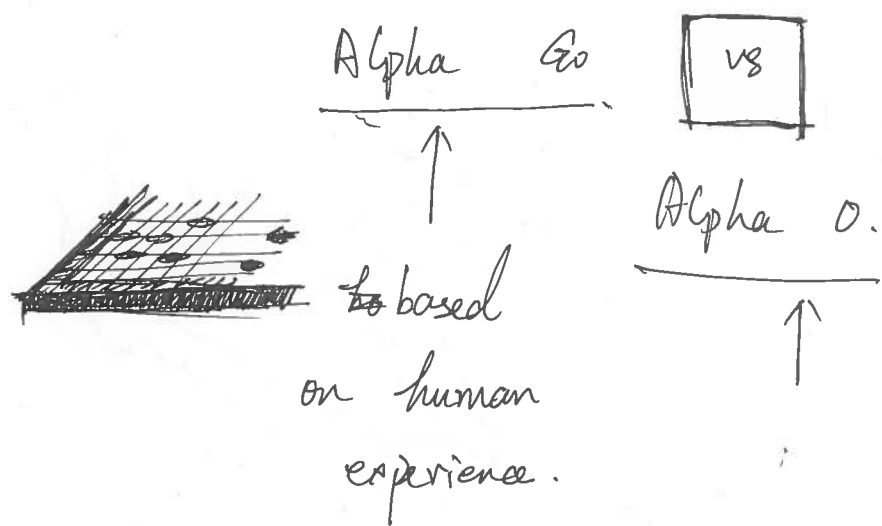 Alpha Go
vs
Alpha 0.
based
on human
experience.